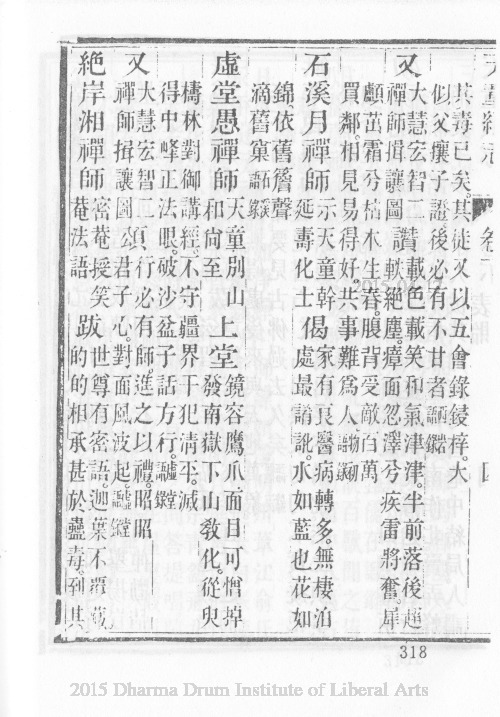 其毒已矣。其徒又以五會錄鋟梓。大
似父攘子證。後必有不甘者
又
大慧宏智二
禪師揖讓圖
讚
載色載笑。和氣津津。半前落後。趂
軼絕塵。瘴面忽澤兮疾雷將奮。犀
顱茁霜兮枯木生春。腹背受敵百萬
買鄰。相見易得好。共事難為人
石溪月禪師
示天童幹
延壽化士
偈
家有良醫病轉多。無棲泊
處最誵訛。水如藍也花如
錦。依舊簷聲
滴舊窠
虛堂愚禪師
天童別山
和尚至
上堂
鏡容鷹爪。面目可憎。掉
發南嶽下山敎化。從臾
檮林對御講經。不守疆界。干犯清平。滅
得中峰正法眼。破沙盆子話方行。
又
大慧宏智二
禪師揖讓圖
公案。行必有師。進之以禮。昭昭
君子心。對面風波起。
絕岸湘禪師
密菴授笑
菴法語
跋
世尊有密語。迦葉不覆藏。
的的相承甚於蠱毒。到其
四
318
2015 Dharma Drum Institute of Liberal Arts